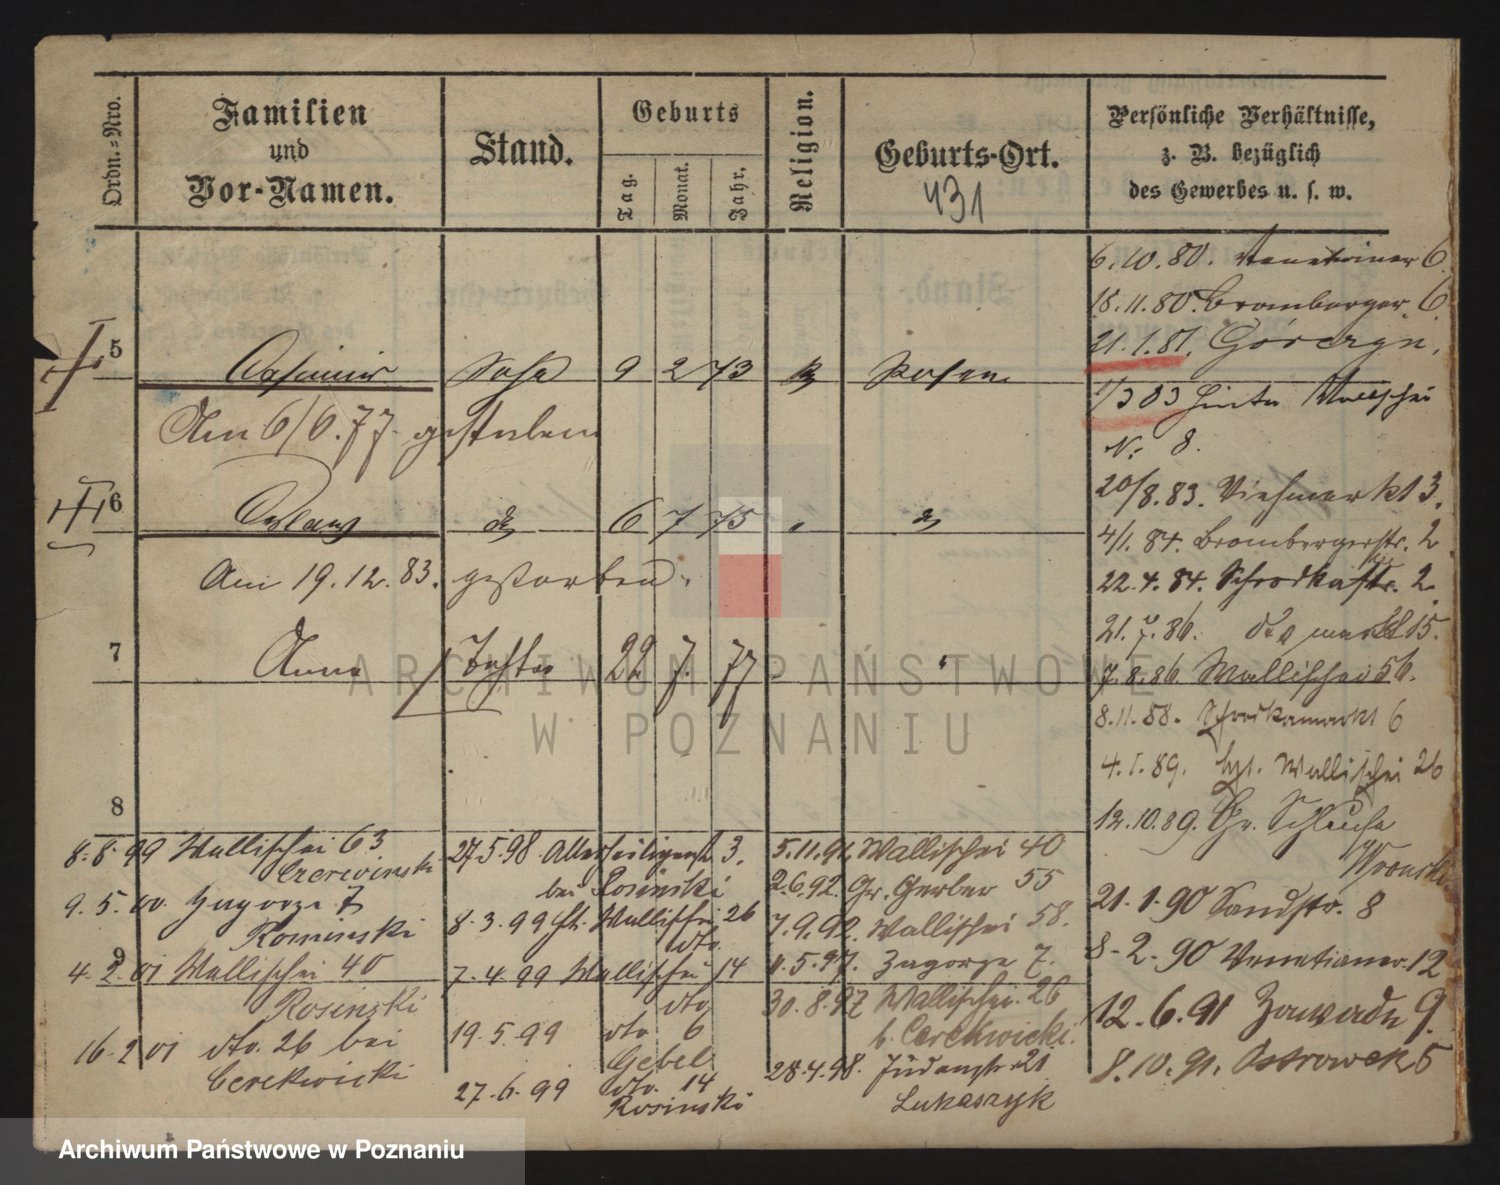 Ordn.=Nro.
Familien
und
Vor-Namen.
Stand.
Geburts
Tag.
Monat.
Jahr.
Religion.
Geburts-Ort.
431
Persönliche Verhältnisse,
z. B. bezüglich
des Gewerbes u. s. w.
5
Casimir Sohn 9 2 73 Posen
Am 6/6.77. gestorben
6
6 7 75 "
Am 19.12.83. gestorben.
7
Anna Tochter 22 7. 77 "
8
9
6.10.80. Venetianer 6.
18.11.80. Bromberger. 6.
21.1.81. Górczyn.
1/3 83 Hinter Wallischei
N. 8.
20/8.83. Viehmarkt 3.
4/1. 84. Brombergerstr. 2
22.4.84. Schrodkastr. 2.
21.7.86. markt 15.
7.8.86. Wallischei 56.
8.11.88. Schrodkamarkt 6
4.1.89. Wallischei 26
12.10.89. Gr. Schleuse
21.1.90 Sandstr. 8
8-2-90 Venetianer. 12
12.6.91 Zawade 9.
8.10.91. Ostrowek 5
5.11.91. Wallischei 40
2.6.92. Gr. Gerber 55
7.9.92. Wallischei 58.
11.5.97. Zagorze 7.
30.8.97 Wallischei 26
b. Cerekwicki.
28.4.98. Judenstr. 21
Lukaszyk
27.5.98 Allerheiligenst 3.
bei Rosinski
8.3.99 Wallischei 26
dto.
7.4.99 Wallischei 14
dto
19.5.99 dto 6
Gebel
27.6.99 dto. 14
Rosinski
8.8.99 Wallischei 63
9.5.00. Zagorze 7
Rominski
4.2.01 Wallischei 40
Rosinski
16.2 01 dto. 26 bei
Cerekwicki
ARCHIWUM PAŃSTWOWE
W POZNANIU
Archiwum Państwowe w Poznaniu